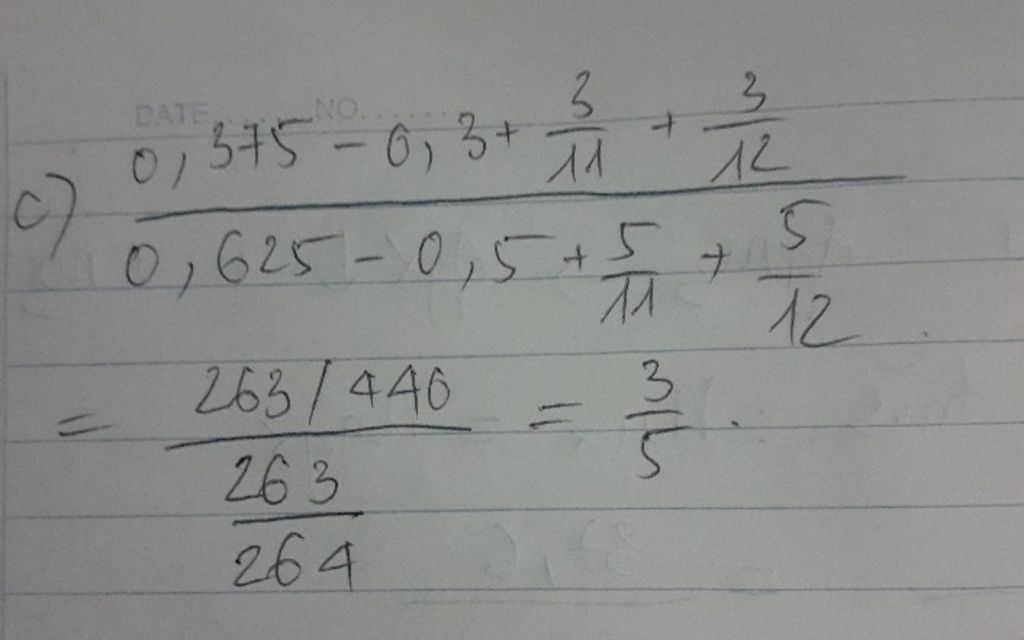 DATE NO.
c) (0,375 - 0,3 + 3/11 + 3/12) / (0,625 - 0,5 + 5/11 + 5/12)
= (263/440) / (263/264) = 3/5.